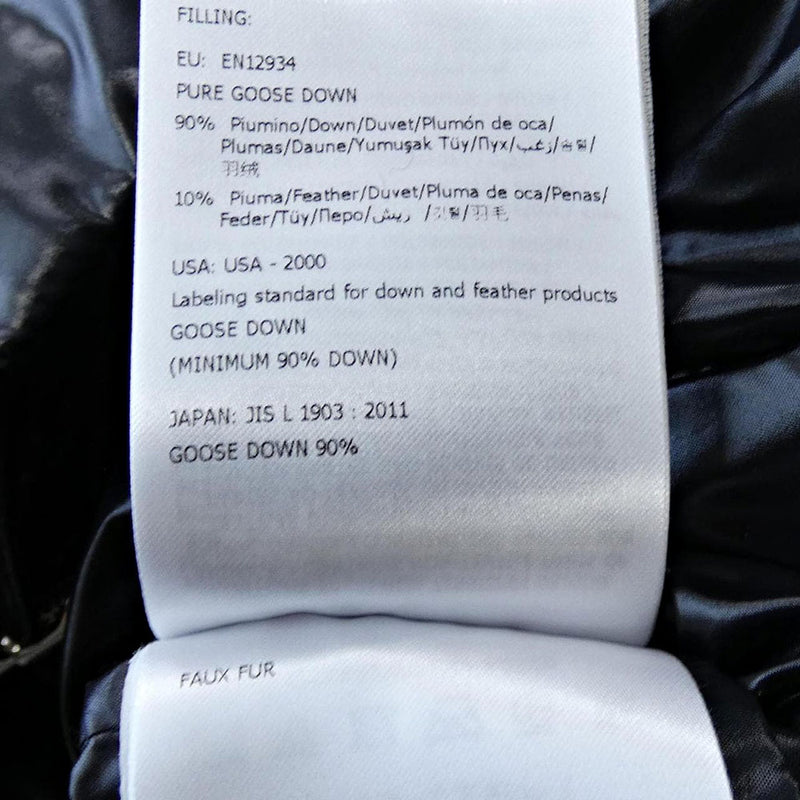 FILLING:
EU: EN12934
PURE GOOSE DOWN
90% Piumino/Down/Duvet/Plumón de oca/
Plumas/Daune/Yumuşak Tüy/Пух/زغب/솜털/
羽绒
10% Piuma/Feather/Duvet/Pluma de oca/Penas/
Feder/Tüy/Перо/ريش /깃털/羽毛
USA: USA - 2000
Labeling standard for down and feather products
GOOSE DOWN
(MINIMUM 90% DOWN)
JAPAN: JIS L 1903 : 2011
GOOSE DOWN 90%
FAUX FUR